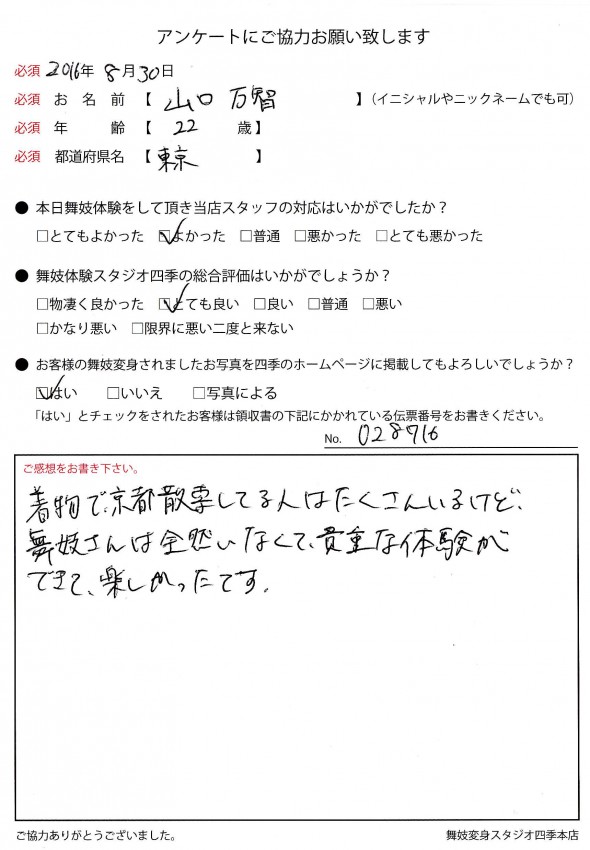 アンケートにご協力お願い致します
必須 2016年 8月30日
必須 お名前【 山口 万智 】（イニシャルやニックネームでも可）
必須 年齢【 22 歳】
必須 都道府県名【 東京 】
● 本日舞妓体験をして頂き当店スタッフの対応はいかがでしたか？
□とてもよかった ☑よかった □普通 □悪かった □とても悪かった
● 舞妓体験スタジオ四季の総合評価はいかがでしょうか？
□物凄く良かった ☑とても良い □良い □普通 □悪い
□かなり悪い □限界に悪い二度と来ない
● お客様の舞妓変身されましたお写真を四季のホームページに掲載してもよろしいでしょうか？
☑はい □いいえ □写真による
「はい」とチェックをされたお客様は領収書の下記にかかれている伝票番号をお書きください。
No. 028716
ご感想をお書き下さい。
着物で、京都散策してる人はたくさんいるけど、
舞妓さんは全然いなくて、貴重な体験が
できて、楽しかったです。
ご協力ありがとうございました。
舞妓変身スタジオ四季本店